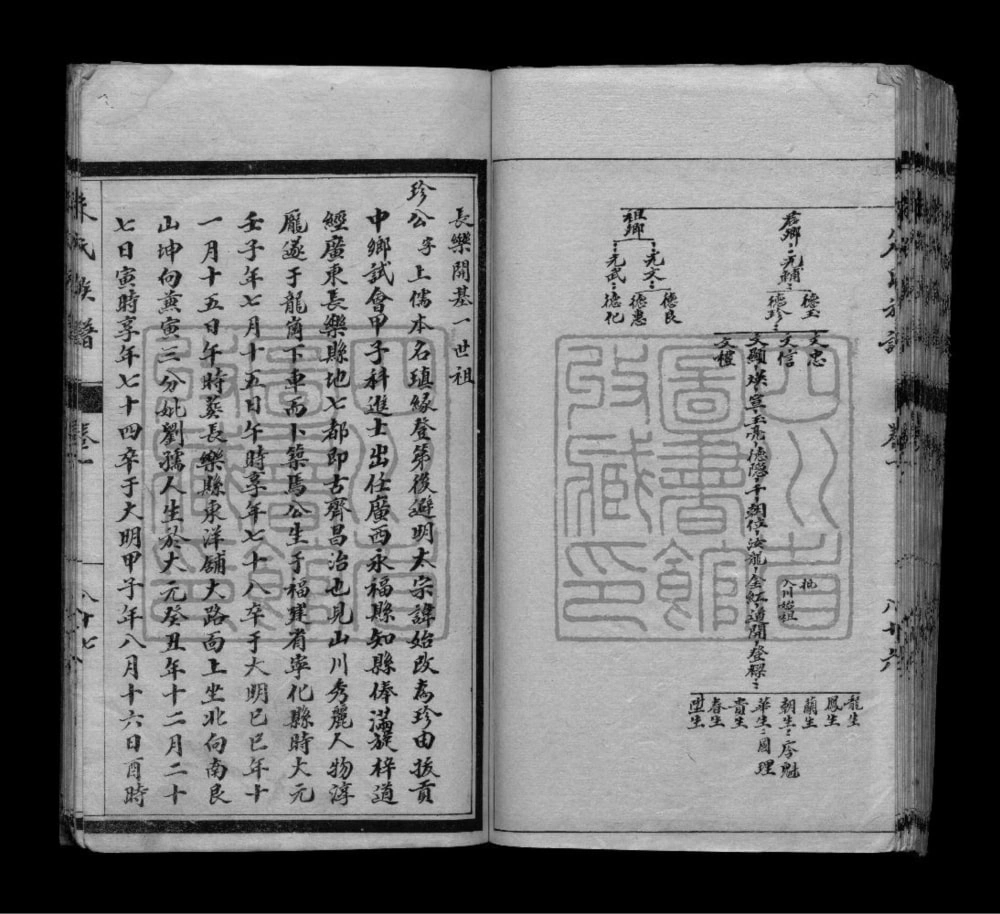 君卿 元輔 德玉
德珍
祖卿 元文 德良
德惠
元武 德化
文忠
文信
文顯 煐 玉亮 德隐 千 朝位 法龍 金虹 道開 登樑
文禮
批
入川始祖
龍生
鳳生
蘭生
朝生 序魁
華生 國理
貴生
春生
陞生
朱氏族譜 卷一 八十六
四川省
圖書館
收藏印
長樂開基一世祖
珍公字上儒本名瑱緣登第後避明太宗諱始改為珍由拔貢
中鄉試會甲子科進士出任廣西永福縣知縣俸滿旋梓道
經廣東長樂縣地七都即古齊昌治也見山川秀麗人物淳
厖遂于龍崗下車而卜築焉公生于福建省寧化縣時大元
壬子年七月十五日午時享年七十八卒于大明己巳年十
一月十五日午時葬長樂縣東洋鋪大路面上坐北向南艮
山坤向兼寅三分妣劉孺人生於大元癸丑年十二月二十
七日寅時享年七十四卒于大明甲子年八月十六日酉時
朱氏族譜 卷一 八十七
四川省
圖書館
收藏印